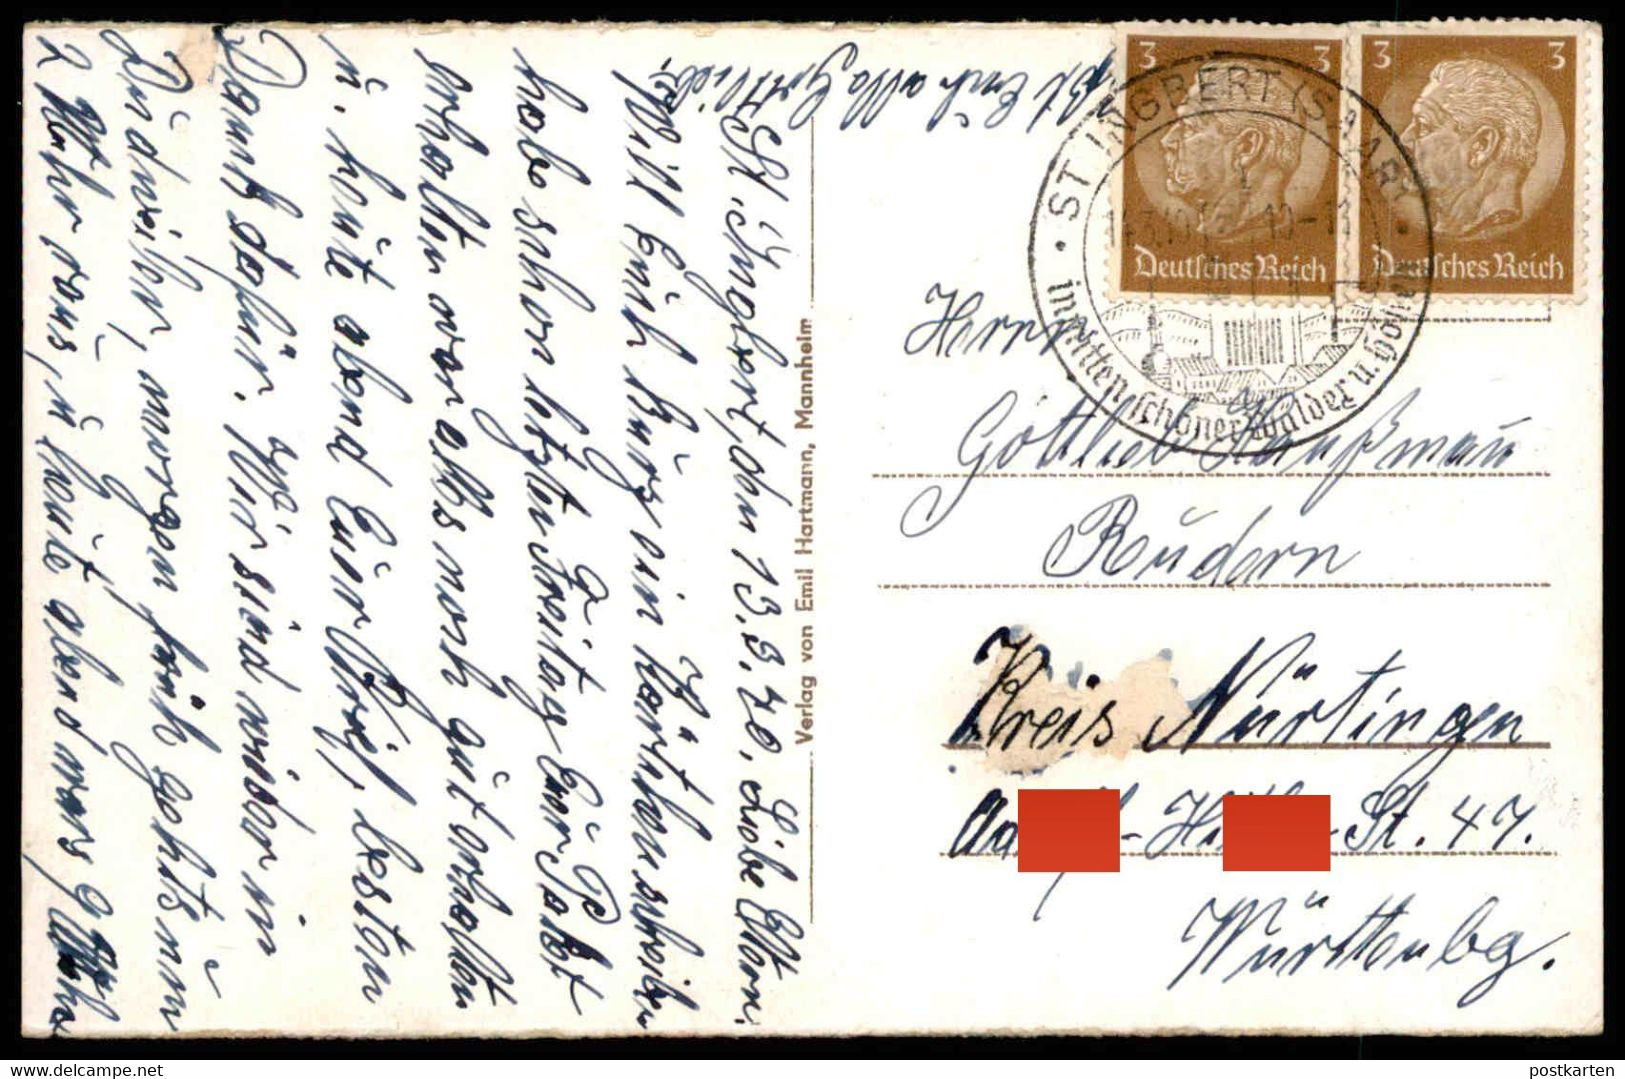 St. Ingbert, den 13.3.40. Liebe Eltern.
Will Euch kurz ein Kärtchen schreiben.
habe schon letzten Freitag Euer Paket
erhalten war alles noch gut erhalten
u. heute abend Euer Brief, besten
Dank dafür. Wir sind wieder in
morgen früh gehts um
2 Uhr raus, u. heute abend wars 9 Uhr
Gottlieb.
Verlag von Emil Hartmann, Mannheim
3 3
Deutsches Reich
3 3
Deutsches Reich
ST INGBERT (SAAR)
inmitten schöner Wälder u. Höhen
Herrn
Gottlieb
Rüdern
Kreis Nürtingen
St. 47.
Württenbg.
postkarten
www.delcampe.net